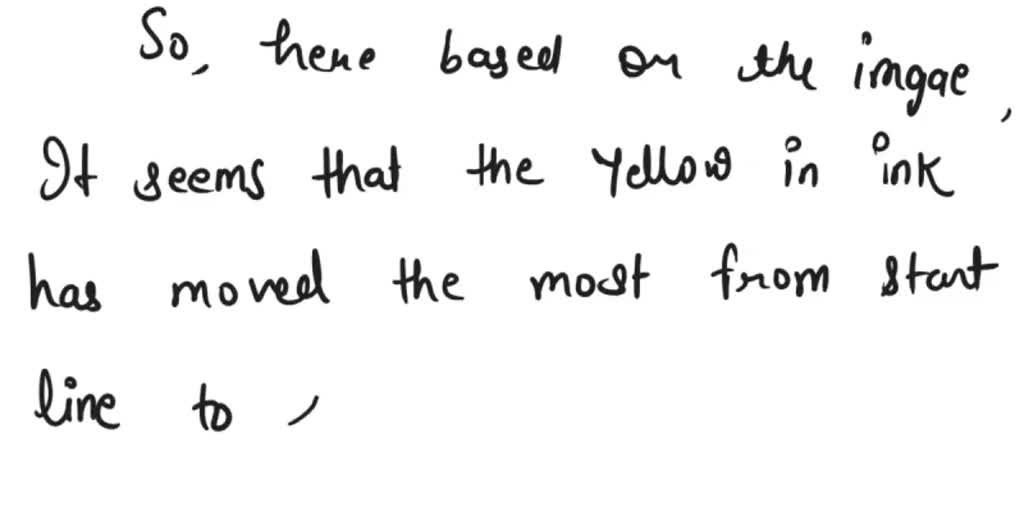 So, here based on the imgae,
It seems that the Yellow in ink
has moved the most from start
line to